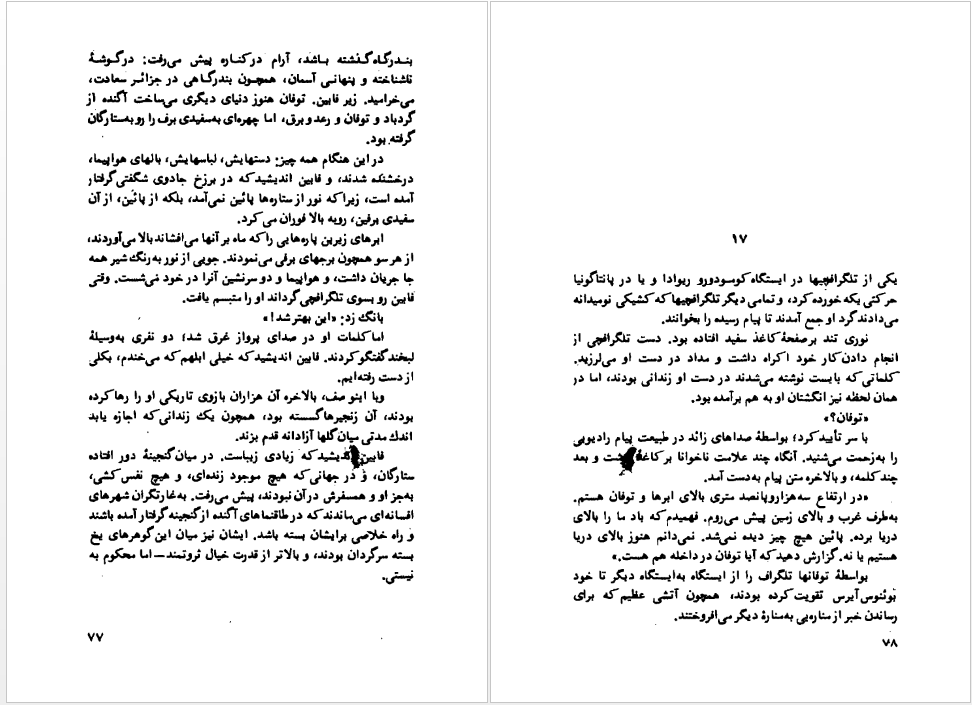 بندرگاه گذشته باشد، آرام در کناره پیش می‌رفت: در گوشهٔ
ناشناخته و پنهانی آسمان، همچون بندرگاهی در جزائر سعادت،
می‌خرامید. زیر فابین. توفان هنوز دنیای دیگری می‌ساخت آگنده از
گردباد و توفان و رعد و برق، اما چهره‌ای به‌سفیدی برف را رو به‌ستارگان
گرفته بود.
در این هنگام همه چیز: دستهایش، لباسهایش، بالهای هواپیما،
درخشنده شدند، و فابین اندیشید که در برزخ جادوی شگفتی گرفتار
آمده است، زیرا که نور از ستاره‌ها پائین نمی‌آمد، بلکه از پائین، از آن
سفیدی برفین، روبه بالا فوران می‌کرد.
ابرهای زیرین پاره‌هایی را که ماه بر آنها می‌افشاند بالا می‌آوردند،
از هر سو همچون برجهای برفی می‌نمودند. جویی از نور به‌رنگ شیر همه
جا جریان داشت، و هواپیما و دو سرنشین آنرا در خود می‌شست. وقتی
فابین رو بسوی تلگرافچی گرداند او را متبسم یافت.
بانگ زد: «این بهتر شد!»
اما کلمات او در صدای پرواز غرق شد؛ دو نفری به‌وسیلهٔ
لبخند گفتگو کردند. فابین اندیشید که خیلی ابلهم که می‌خندم، بکلی
از دست رفته‌ایم.
وبا اینو صف، بالاخره آن هزاران بازوی تاریکی او را رها کرده
بودند، آن زنجیرها گسسته بود، همچون یک زندانی که اجازه یابد
اندک مدتی میان گلها آزادانه قدم بزند.
فابین اندیشید که زیادی زیباست. در میان گنجینهٔ دور افتاده
ستارگان، و در جهانی که هیچ موجود زنده‌ای، و هیچ نفس کشی،
به‌جز او و همسفرش در آن نبودند، پیش می‌رفت. به‌غارتگران شهرهای
افسانه‌ای می‌ماندند که در طاقنماهای آگنده از گنجینه گرفتار آمده باشند
و راه خلاصی برایشان بسته باشد. ایشان نیز میان این گوهرهای یخ
بسته سرگردان بودند، و بالاتر از قدرت خیال ثروتمند—اما محکوم به
نیستی.
۷۷
۱۷
یکی از تلگرافچیها در ایستگاه کومودورو ریوادا و یا در پانتاگونیا
حرکتی یکه خورده کرد، و تمامی دیگر تلگرافچیها که کشیکی نومیدانه
می‌دادند گرد او جمع آمدند تا پیام رسیده را بخوانند.
نوری تند بر صفحهٔ کاغذ سفید افتاده بود. دست تلگرافچی از
انجام دادن کار خود اکراه داشت و مداد در دست او می‌لرزید.
کلماتی که بایست نوشته می‌شدند در دست او زندانی بودند، اما در
همان لحظه نیز انگشتان او به هم برآمده بود.
«توفان؟»
با سر تأیید کرد؛ بواسطهٔ صداهای زائد در طبیعت پیام رادیویی
را به‌زحمت می‌شنید. آنگاه چند علامت ناخوانا بر کاغذ و بعد
چند کلمه، و بالاخره متن پیام به‌دست آمد.
«در ارتفاع سه‌هزار و پانصد متری بالای ابرها و توفان هستم.
به‌طرف غرب و بالای زمین پیش می‌روم. فهمیدم که باد ما را بالای
دریا برده. پائین هیچ چیز دیده نمی‌شد. نمی‌دانم هنوز بالای دریا
هستیم یا نه. گزارش دهید که آیا توفان در داخله هم هست.»
بواسطهٔ توفانها تلگراف را از ایستگاه به‌ایستگاه دیگر تا خود
بوئنوس‌آیرس تقویت کرده بودند، همچون آتشی عظیم که برای
رساندن خبر از مناره‌یی به‌منارهٔ دیگر می‌افروختند.
۷۸